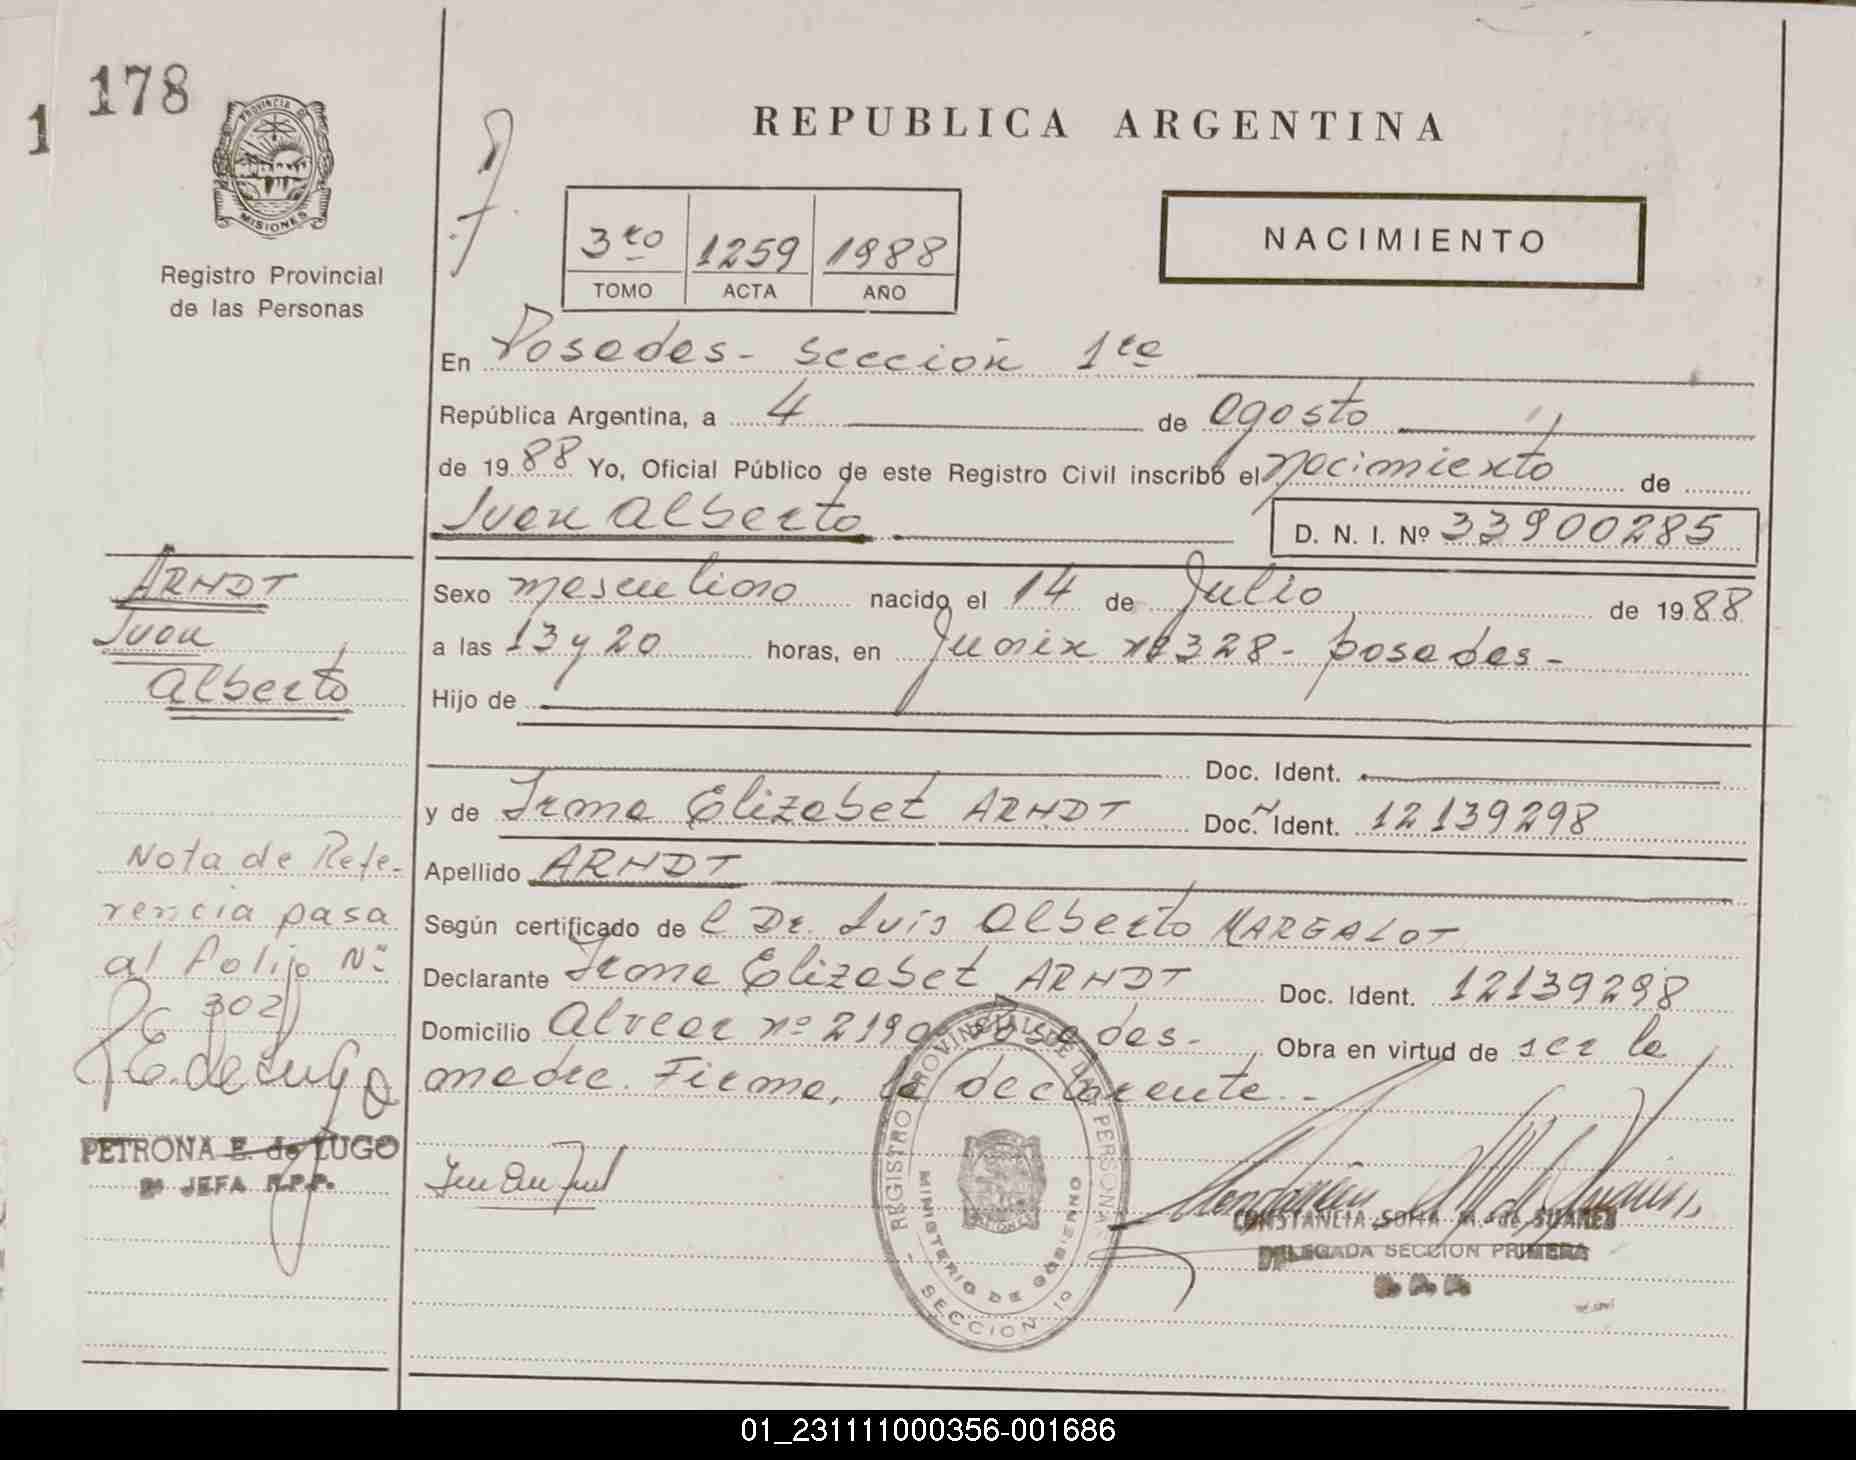 178
1
PROVINCIA DE
MISIONES
Registro Provincial
de las Personas
REPUBLICA ARGENTINA
NACIMIENTO
3ro 1259 1988
TOMO ACTA AÑO
En Posadas - Sección 1ra
República Argentina, a 4 de Agosto
de 1988 Yo, Oficial Público de este Registro Civil inscribo el nacimiento de
Juan Alberto D. N. I. Nº 33900285
Sexo masculino nacido el 14 de Julio de 1988
a las 13 y 20 horas, en Junin nº 328 - Posadas -
Hijo de
Doc. Ident.
y de Irma Elizabet ARNDT Doc. Ident. 12139298
Apellido ARNDT
Según certificado de l Dr. Luis Alberto MARGALOT
Declarante Irma Elizabet ARNDT Doc. Ident. 12139298
Domicilio Alvear nº 2190 Posadas - Obra en virtud de ser la
madre. Firma, la declarante.-
ARNDT
Juan
Alberto
Nota de Refe-
rencia pasa
al folijo Nº
302
P.E. de Lugo
PETRONA E. de LUGO
2ª JEFA R.P.P.
REGISTRO PROVINCIAL DE LAS PERSONAS
MINISTERIO DE GOBIERNO
SECCION 1ª
CONSTANCIA SOFIA M. de SUARES
DELEGADA SECCION PRIMERA
01_231111000356-001686